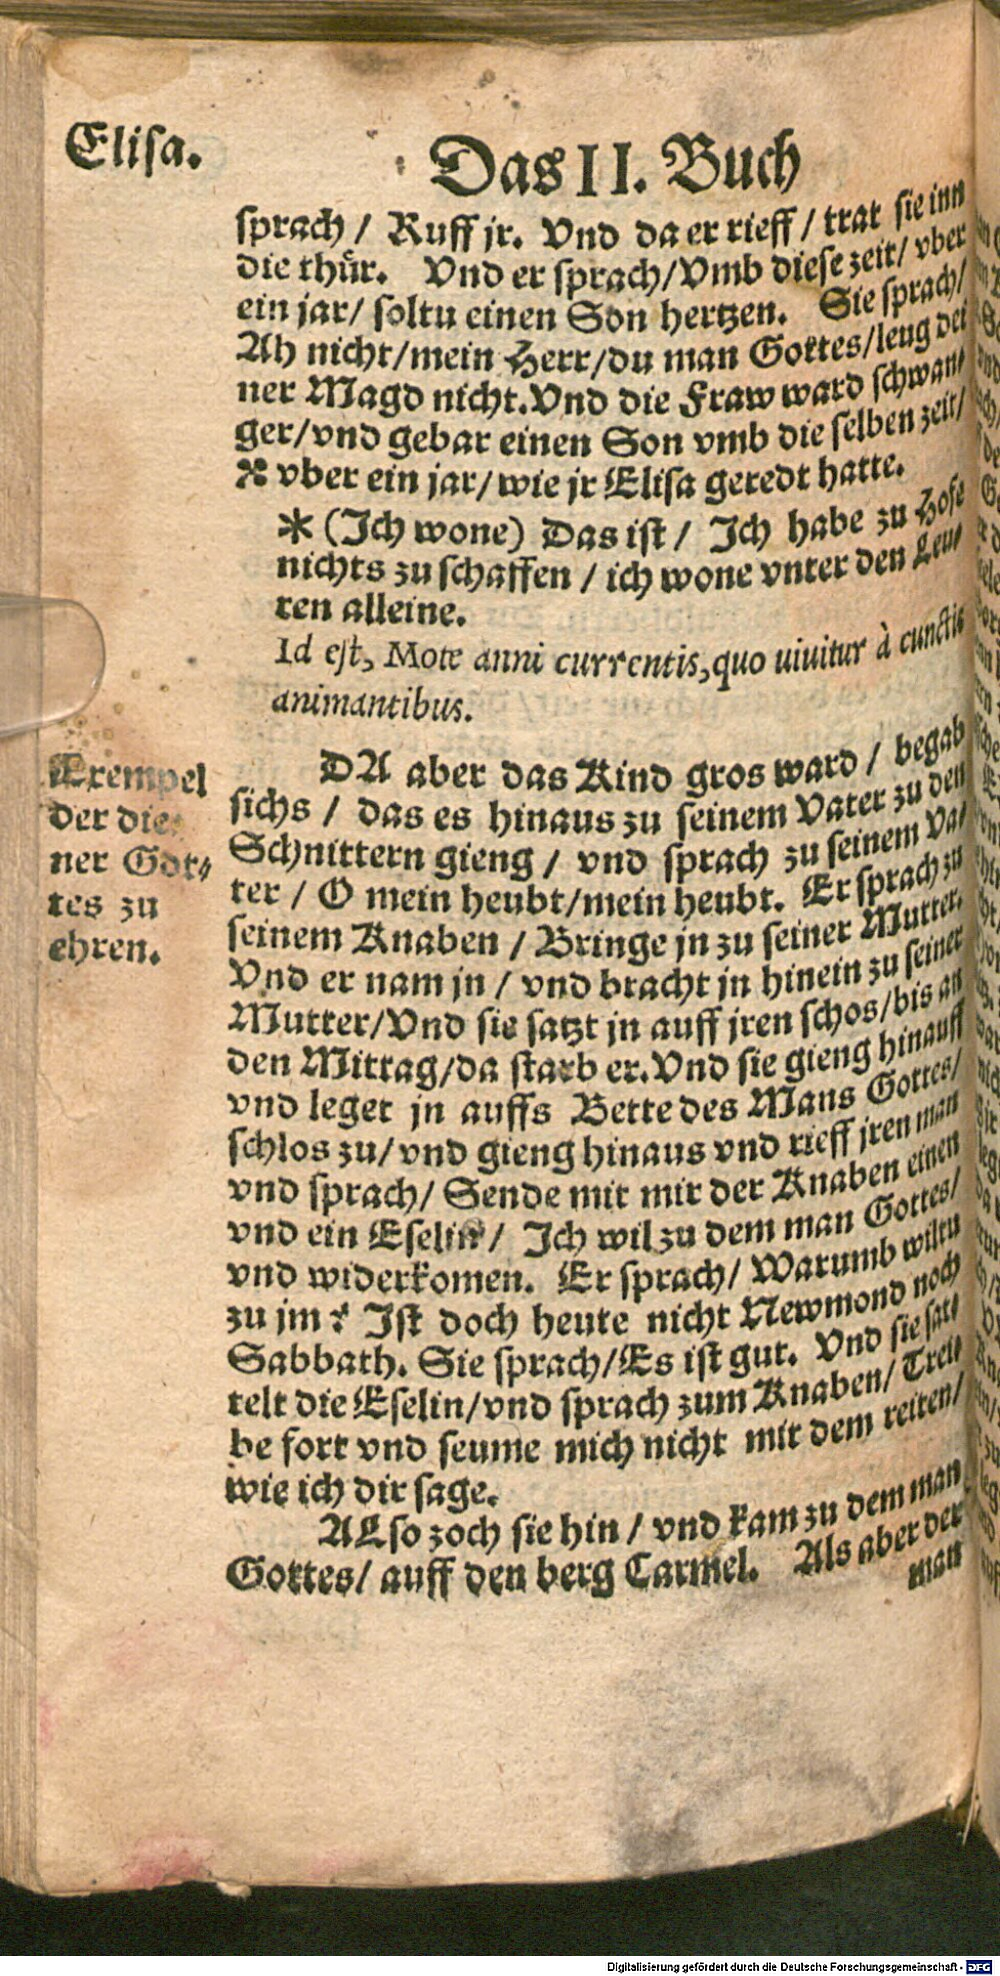 Elisa.
Das II. Buch
sprach / Ruff jr. Vnd da er rieff / trat sie inn
die thür. Vnd er sprach/Vmb diese zeit/ vber
ein jar/ soltu einen Son hertzen. Sie sprach/
Ah nicht/mein Herr/du man Gottes/leug dei
ner Magd nicht.Vnd die Fraw ward schwan/
ger/vnd gebar einen Son vmb die selben zeit/
vber ein jar/ wie jr Elisa geredt hatte.
* (Ich wone) Das ist / Ich habe zu Hofe
nichts zu schaffen / ich wone vnter den Leu/
ten alleine.
Id est, More anni currentis,quo uiuitur à cunctis
animantibus.
Exempel
der die
ner Got/
tes zu
ehren.
DA aber das Kind gros ward / begab
sichs / das es hinaus zu seinem Vater zu den
Schnittern gieng / vnd sprach zu seinem Va/
ter / O mein heubt/mein heubt. Er sprach zu
seinem Knaben / Bringe jn zu seiner Mutter.
Vnd er nam jn / vnd bracht jn hinein zu seiner
Mutter/Vnd sie satzt jn auff jren schos/bis an
den Mittag/da starb er.Vnd sie gieng hinauff
vnd leget jn auffs Bette des Mans Gottes/
schlos zu/ vnd gieng hinaus vnd rieff jren man
vnd sprach/ Sende mir mir der Knaben einen
vnd ein Eselin/ Ich wil zu dem man Gottes/
vnd widerkomen. Er sprach/ Warumb wiltu
zu jm? Ist doch heute nicht Newmond noch
Sabbath. Sie sprach/Es ist gut. Vnd sie sat/
telt die Eselin/vnd sprach zum Knaben/ Trei/
be fort vnd seume mich nicht mit dem reiten/
wie ich dir sage.
ALso zoch sie hin / vnd kam zu dem man
Gottes/ auff den berg Carmel. Als aber der
man
Digitalisierung gefördert durch die Deutsche Forschungsgemeinschaft - DFG